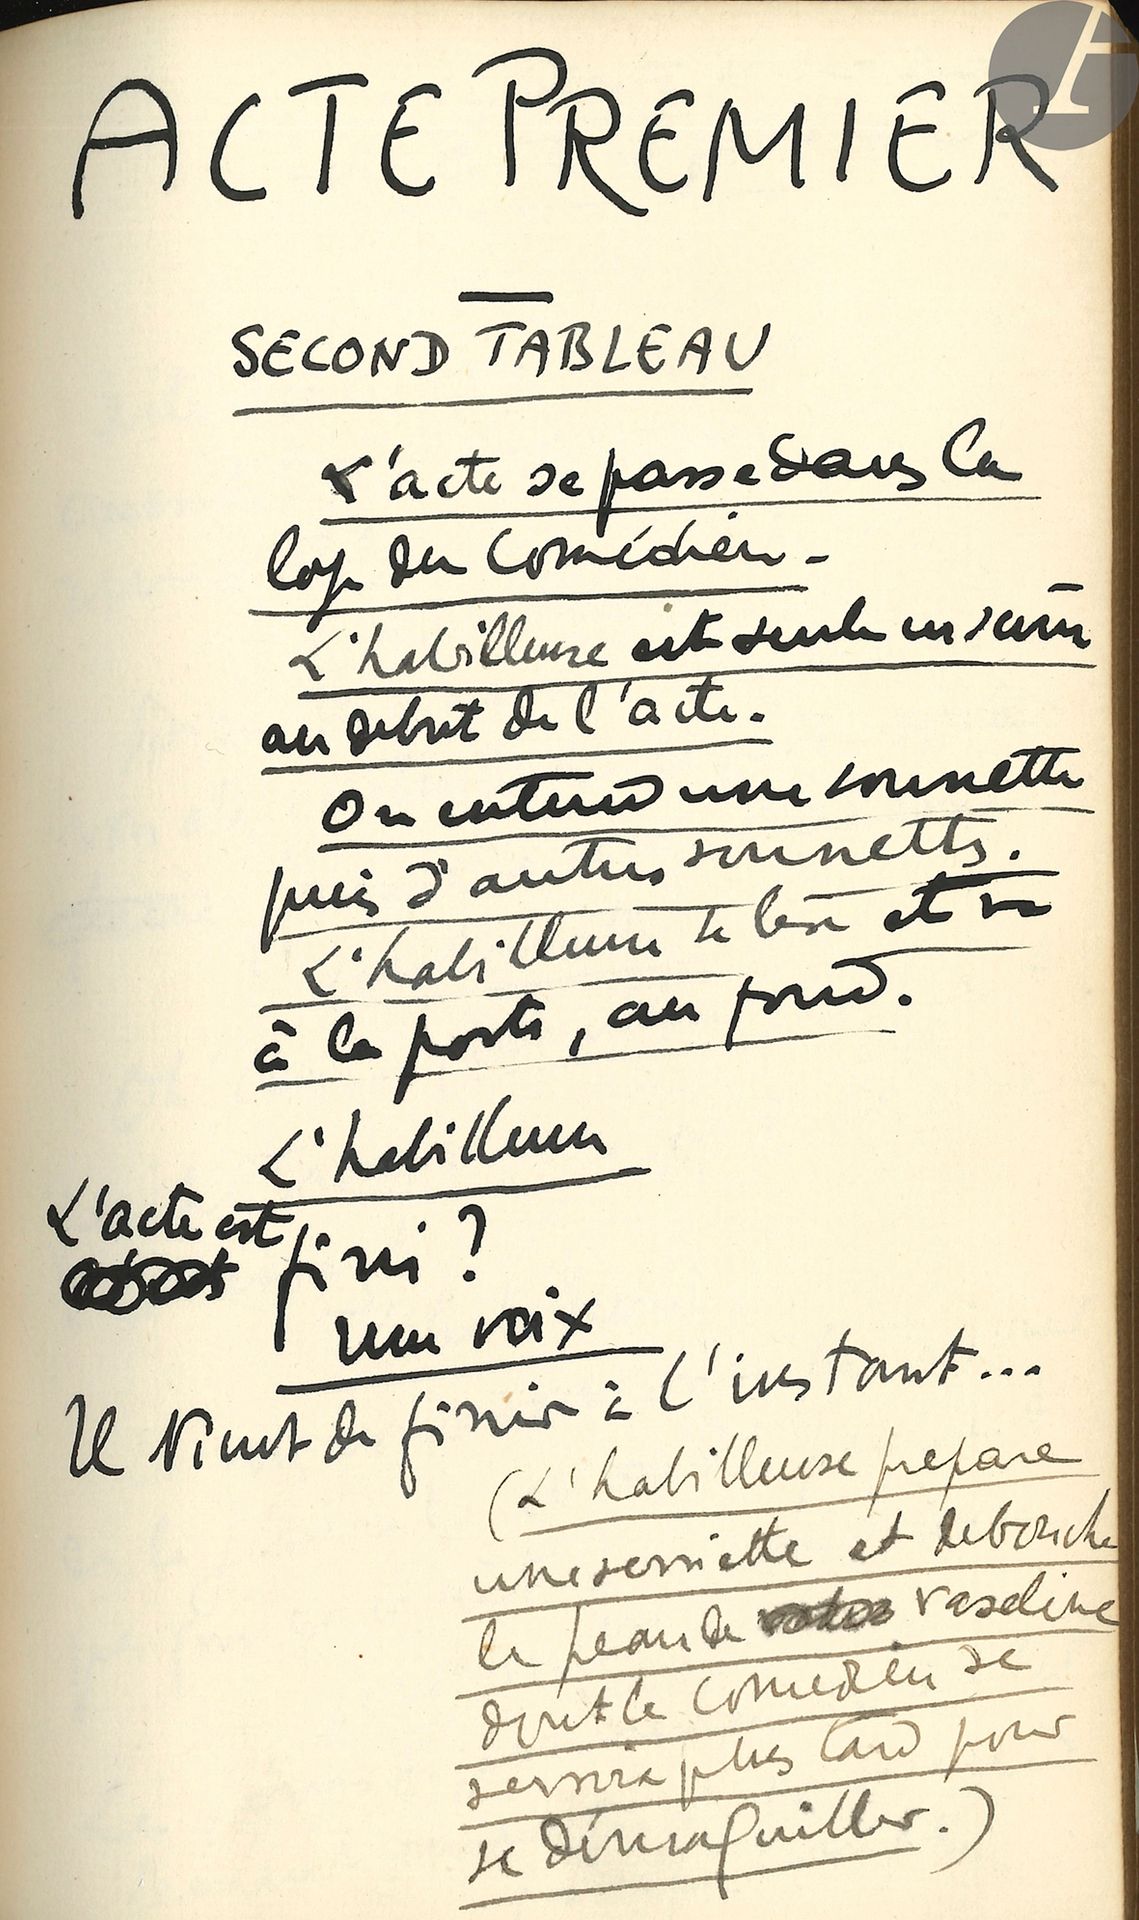 ACTE PREMIER
SECOND TABLEAU
L'acte se passe dans la
loge du Comédien.
L'habilleuse est seule en scène
au debut de l'acte.
On entend une sonnette
puis d'autres sonnettes.
L'habilleuse se lève et va
à la porte, au fond.
L'habilleuse
L'acte est
fini ?
une voix
Il vient de finir à l'instant...
(L'habilleuse prepare
une serviette et debouche
le peau de vaseline
dont le comedien se
servira plus tard pour
se démaquiller.)